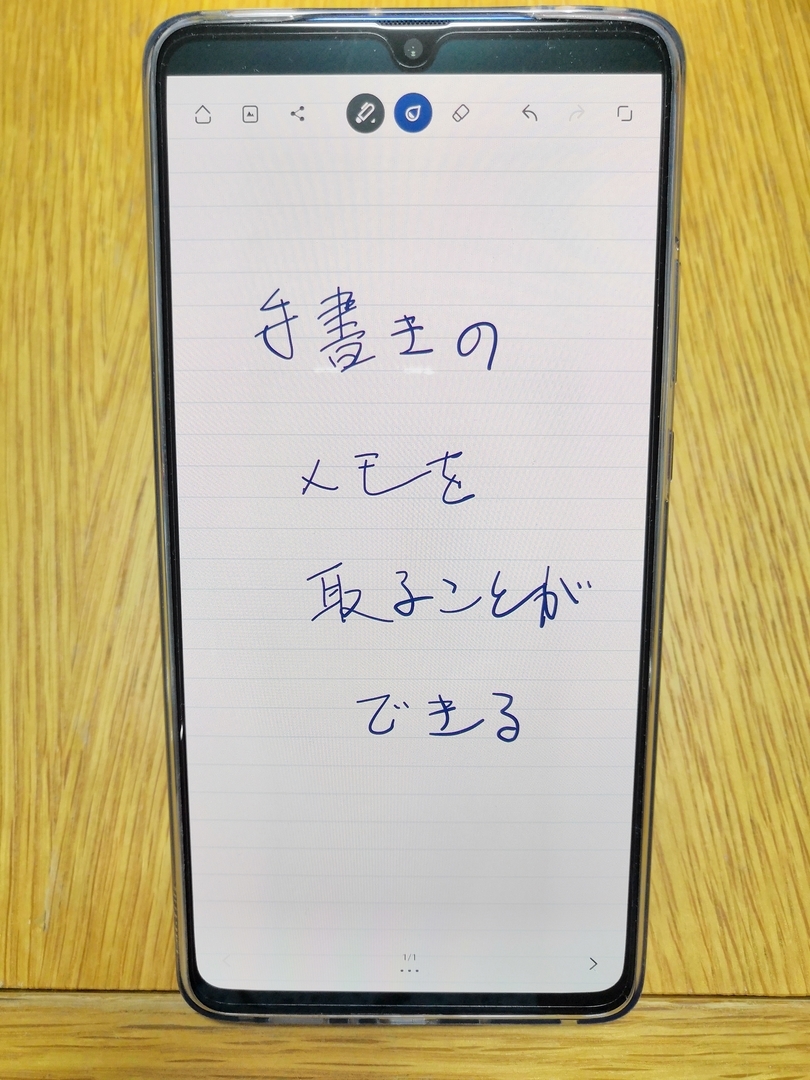 手書きの
メモを
取ることが
できる
1/1